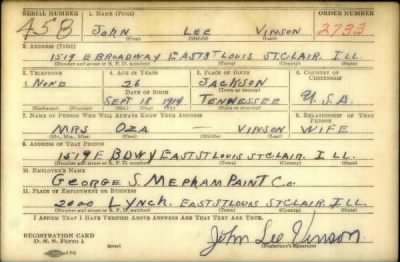 SERIAL NUMBER 1. NAME (Print) ORDER NUMBER
458 JOHN LEE VINSON 2733
(First) (Middle) (Last)
2. ADDRESS (Print)
1519 E BROADWAY EAST ST LOUIS ST. CLAIR. ILL.
(Number and street or R. F. D. number) (Town) (County) (State)
3. TELEPHONE 4. AGE IN YEARS 5. PLACE OF BIRTH 6. COUNTRY OF CITIZENSHIP
NONE 26 JACKSON
DATE OF BIRTH (Town or county)
SEPT 18 1914 TENNESSEE U.S.A.
(Exchange) (Number) (Mo.) (Day) (Yr.) (State or country)
7. NAME OF PERSON WHO WILL ALWAYS KNOW YOUR ADDRESS 8. RELATIONSHIP OF THAT PERSON
MRS OZA — VINSON WIFE
(Mr., Mrs., Miss) (First) (Middle) (Last)
9. ADDRESS OF THAT PERSON
1519 E BDWY EAST ST LOUIS ST CLAIR. ILL.
(Number and street or R. F. D. number) (Town) (County) (State)
10. EMPLOYER'S NAME
GEORGE S. MEPHAM PAINT Co.
11. PLACE OF EMPLOYMENT OR BUSINESS
2000 LYNCH. EAST ST LOUIS ST CLAIR ILL.
(Number and street or R. F. D. number) (Town) (County) (State)
I AFFIRM THAT I HAVE VERIFIED ABOVE ANSWERS AND THAT THEY ARE TRUE.
REGISTRATION CARD
D. S. S. Form 1 John Lee Vinson
(Registrant's signature)